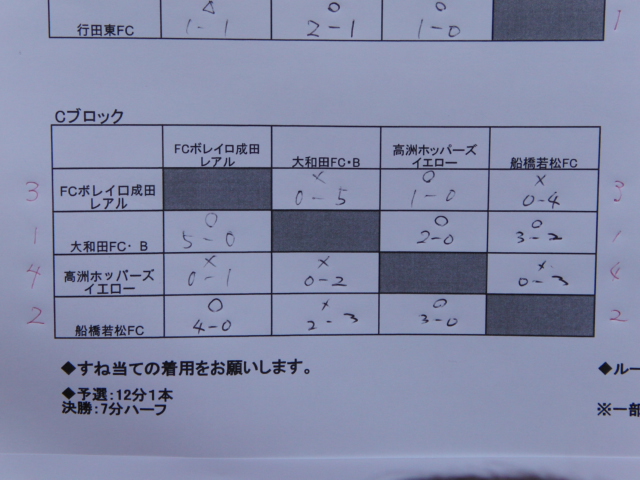 △ ○ ○
行田東FC 1-1 2-1 1-0 1
Cブロック
FCボレイロ成田
レアル 大和田FC・B 高洲ホッパーズ
イエロー 船橋若松FC
3 FCボレイロ成田
レアル × 0-5 ○ 1-0 × 0-4 3
1 大和田FC・B ○ 5-0 ○ 2-0 ○ 3-2 1
4 高洲ホッパーズ
イエロー × 0-1 × 0-2 × 0-3 4
2 船橋若松FC ○ 4-0 × 2-3 ○ 3-0 2
◆すね当ての着用をお願いします。
◆ルー
◆予選:12分1本
決勝:7分ハーフ
※一部